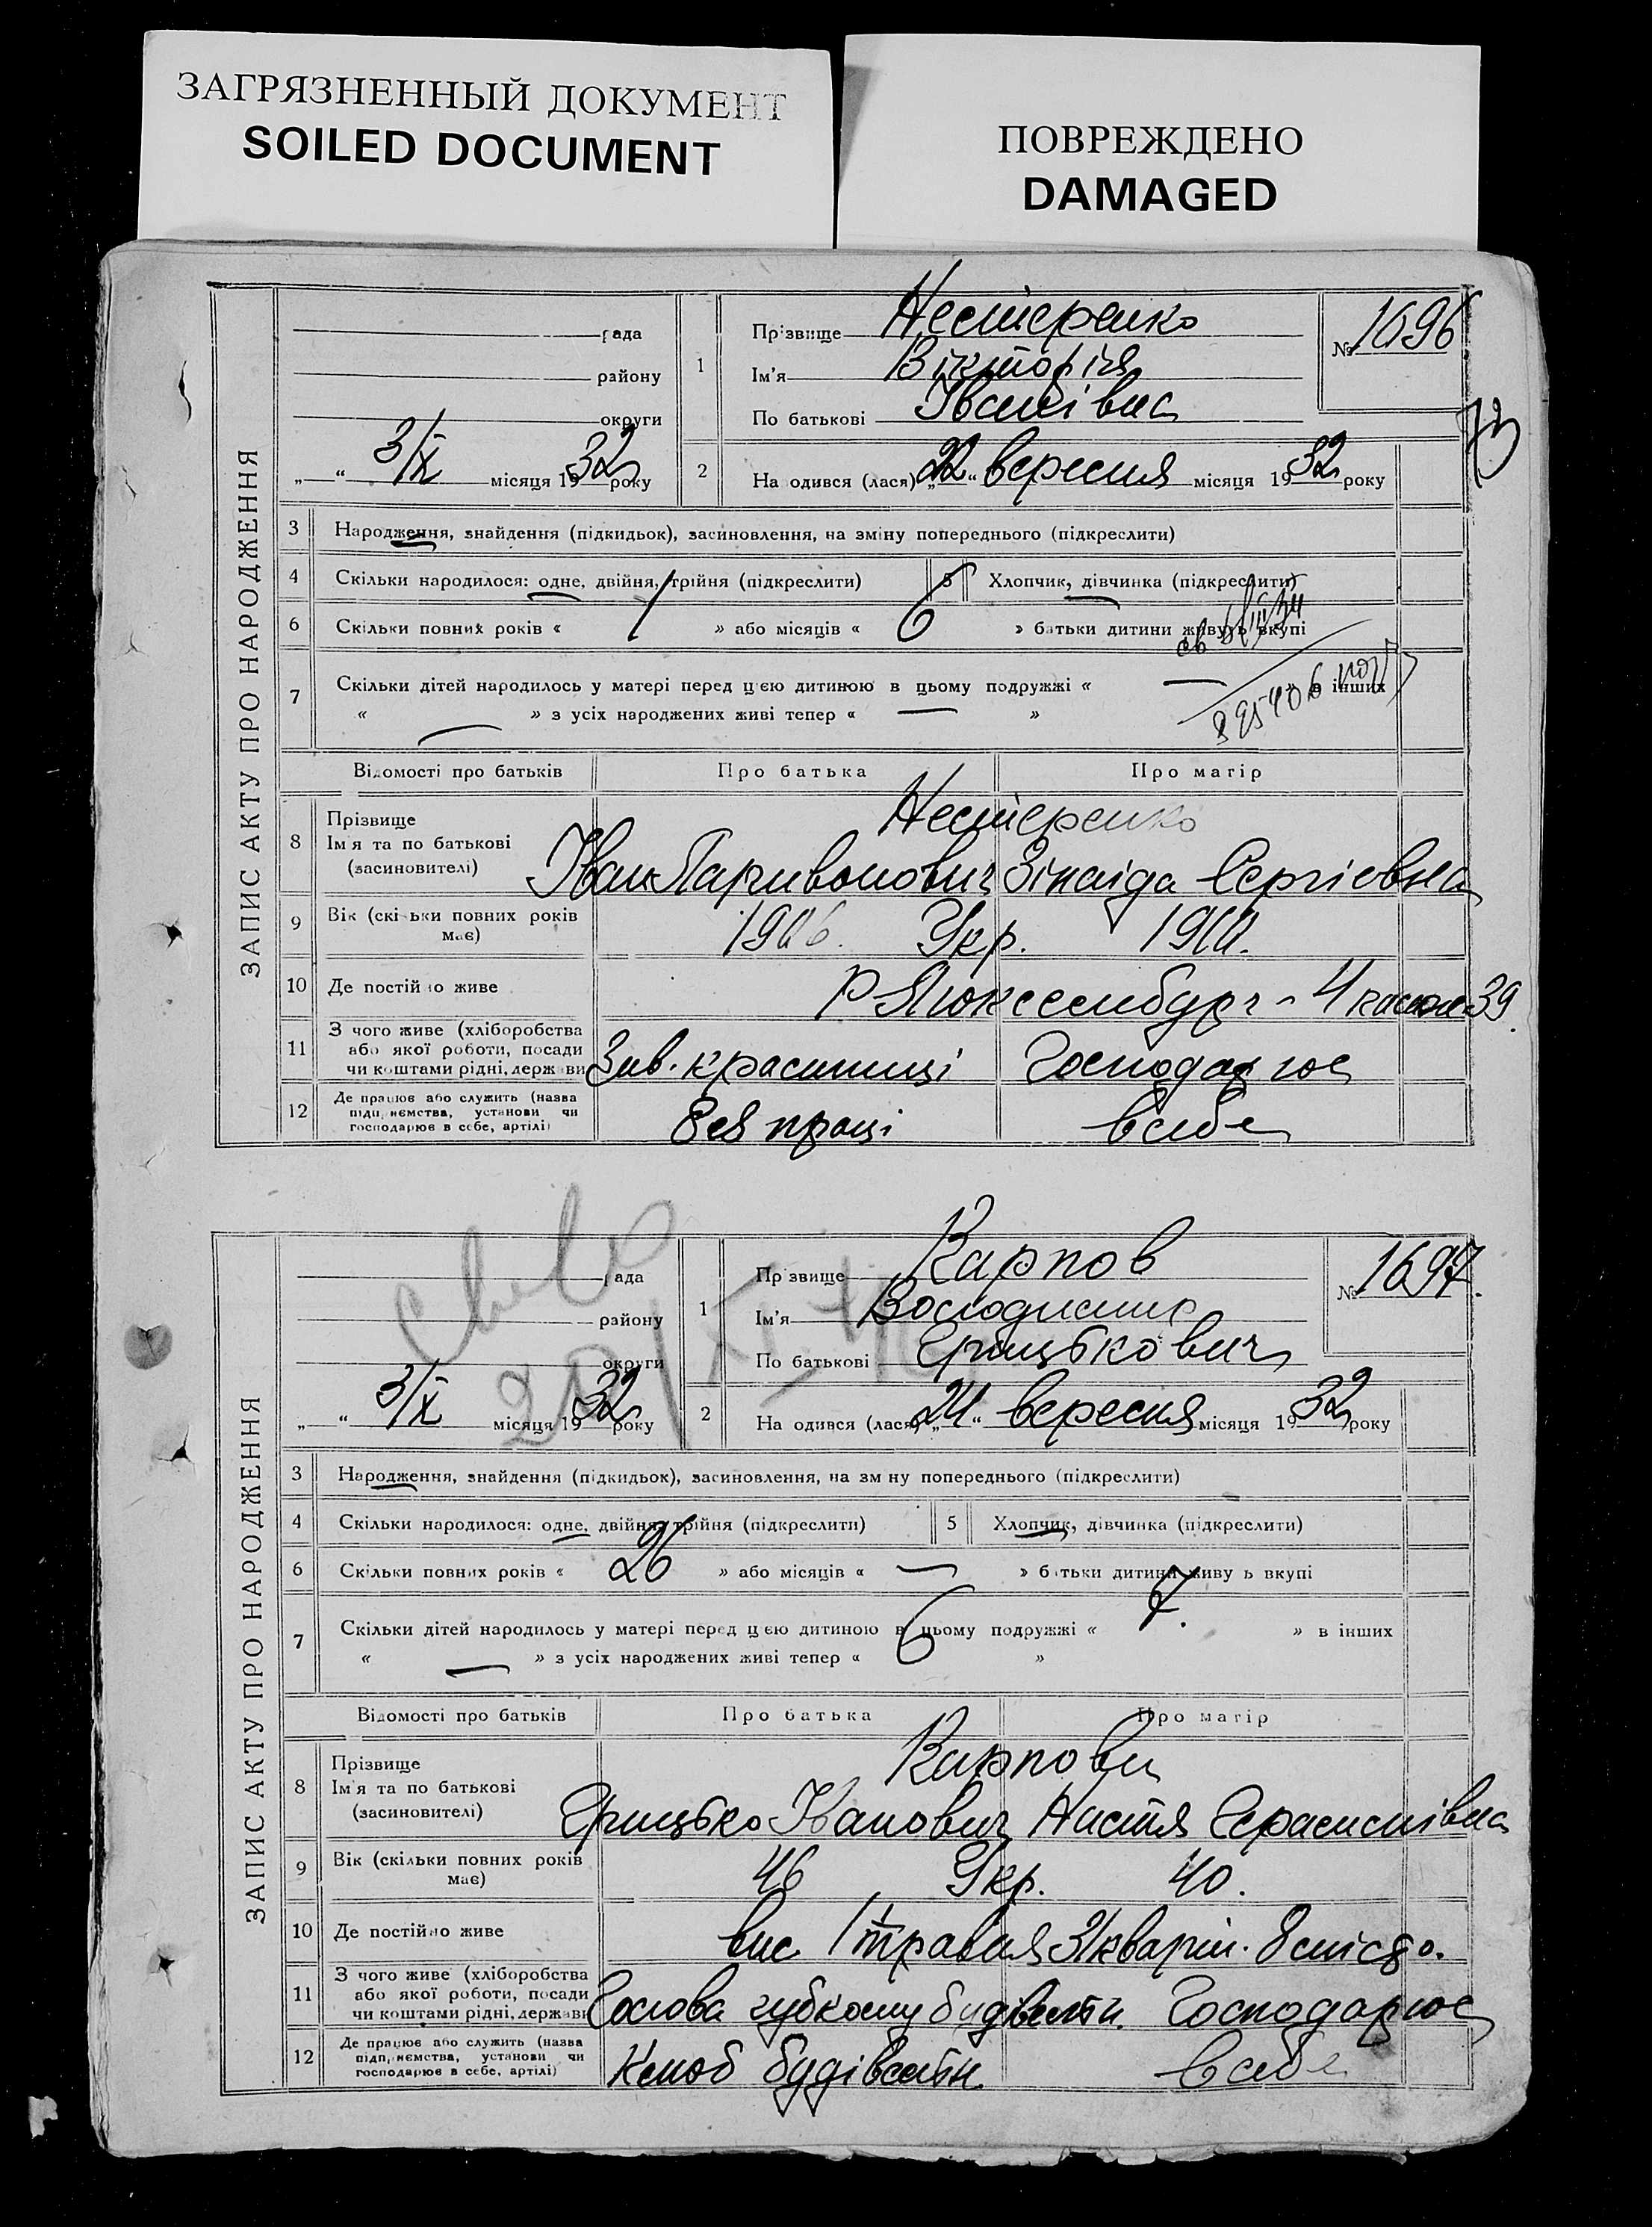 ЗАГРЯЗНЕННЫЙ ДОКУМЕНТ
SOILED DOCUMENT
ПОВРЕЖДЕНО
DAMAGED
ЗАПИС АКТУ ПРО НАРОДЖЕННЯ
рада
району
округи
„ “ 3/X місяця 1932 року
1 Прізвище Нестеренко
Ім'я Вікторія
По батькові Іванівна
№ 1696
73
2 На одився (лася) „22“ вересня місяця 1932 року
3 Народження, знайдення (підкидьок), засиновлення, на зміну попереднього (підкреслити)
4 Скільки народилося: одне, двійня, трійня (підкреслити)
5 Хлопчик, дівчинка (підкреслити)
6 Скільки повних років « 1 » або місяців « 6 » батьки дитини живуть вкупі
7 Скільки дітей народилось у матері перед цією дитиною в цьому подружжі « — » в інших
« — » з усіх народжених живі тепер « — »
Відомості про батьків Про батька Про матір
8 Прізвище Ім'я та по батькові (засиновителі)
Нестеренко
Іван Паривонович Зінаїда Сергієвна
9 Вік (скільки повних років має) 1906. Укр.
10 Де постійно живе Р Люксембург - 4 39.
11 З чого живе (хліборобства або якої роботи, посади чи коштами рідні, держави Зав. Господарює
12 Де працює або служить (назва підприємства, установи чи господарює в себе, артілі) праці в себе
ЗАПИС АКТУ ПРО НАРОДЖЕННЯ
рада
району
округи
„ “ 3/X місяця 1932 року
1 Пр звище Карпов
Ім'я Володимир
По батькові Грицькович
№ 1697.
2 На одився (лася) „24“ вересня місяця 1932 року
3 Народження, знайдення (підкидьок), засиновлення, на зм ну попереднього (підкреслити)
4 Скільки народилося: одне, двійня, трійня (підкреслити)
5 Хлопчик, дівчинка (підкреслити)
6 Скільки повних років « 26 » або місяців « — » батьки дитини живу ь вкупі
7 Скільки дітей народилось у матері перед цією дитиною в цьому подружжі « 7. » в інших
« — » з усіх народжених живі тепер « 6 »
Відомості про батьків Про батька Про матір
8 Прізвище Ім'я та по батькові (засиновителі)
Карпови
Грицько Іванович Настя Герасимівна
9 Вік (скільки повних років має) 46 Укр. 40.
10 Де постійно живе вис. 1 травня 31 кварт. 8 місце.
11 З чого живе (хліборобства або якої роботи, посади чи коштами рідні, держави Голова Господарює
12 Де працює або служить (назва підприємства, установи чи господарює в себе, артілі) будівельн. в себе